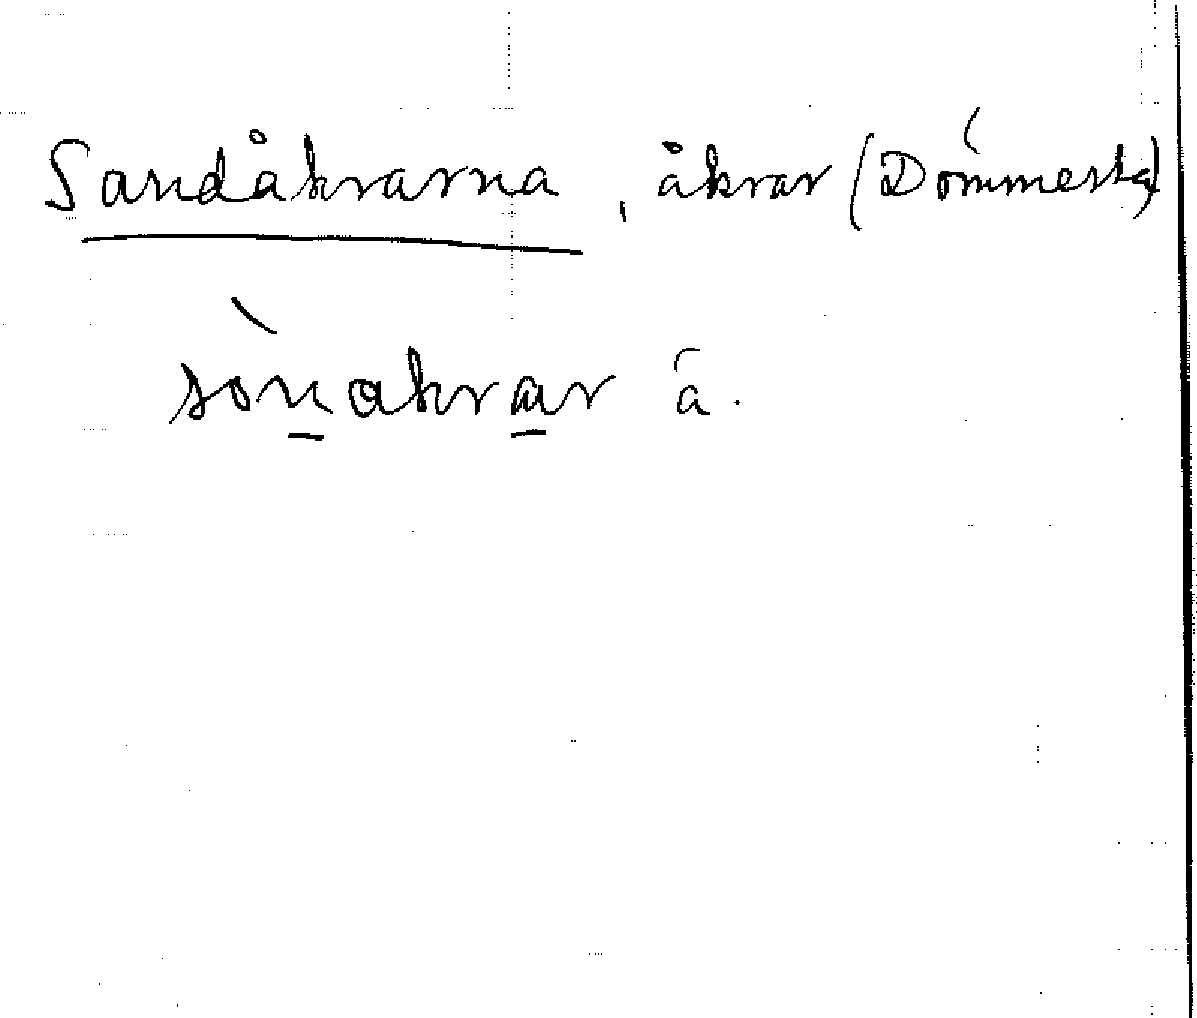 Sandåkrarna, åkrar (Dómmesta)
sònakrar á.